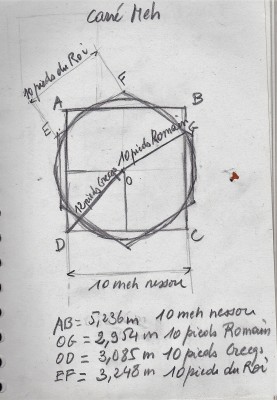 carré Meh
10 pieds du Roi
F
A
B
E
G
10 pieds Romain
12 pieds Grecgs
O
D
C
10 meh nessou
AB = 5,236 m 10 meh nessou
OG = 2,954 m 10 pieds Romain
OD = 3,085 m 10 pieds Grecgs,
EF = 3,248 m 10 pieds du Roi